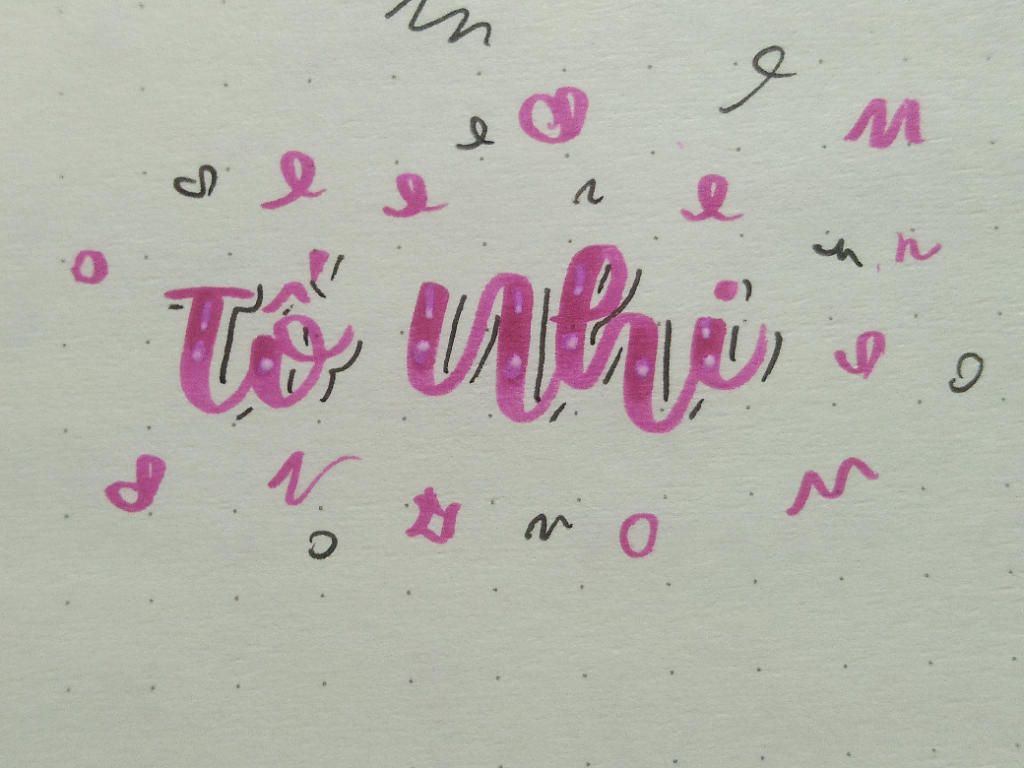 Tố Nhi